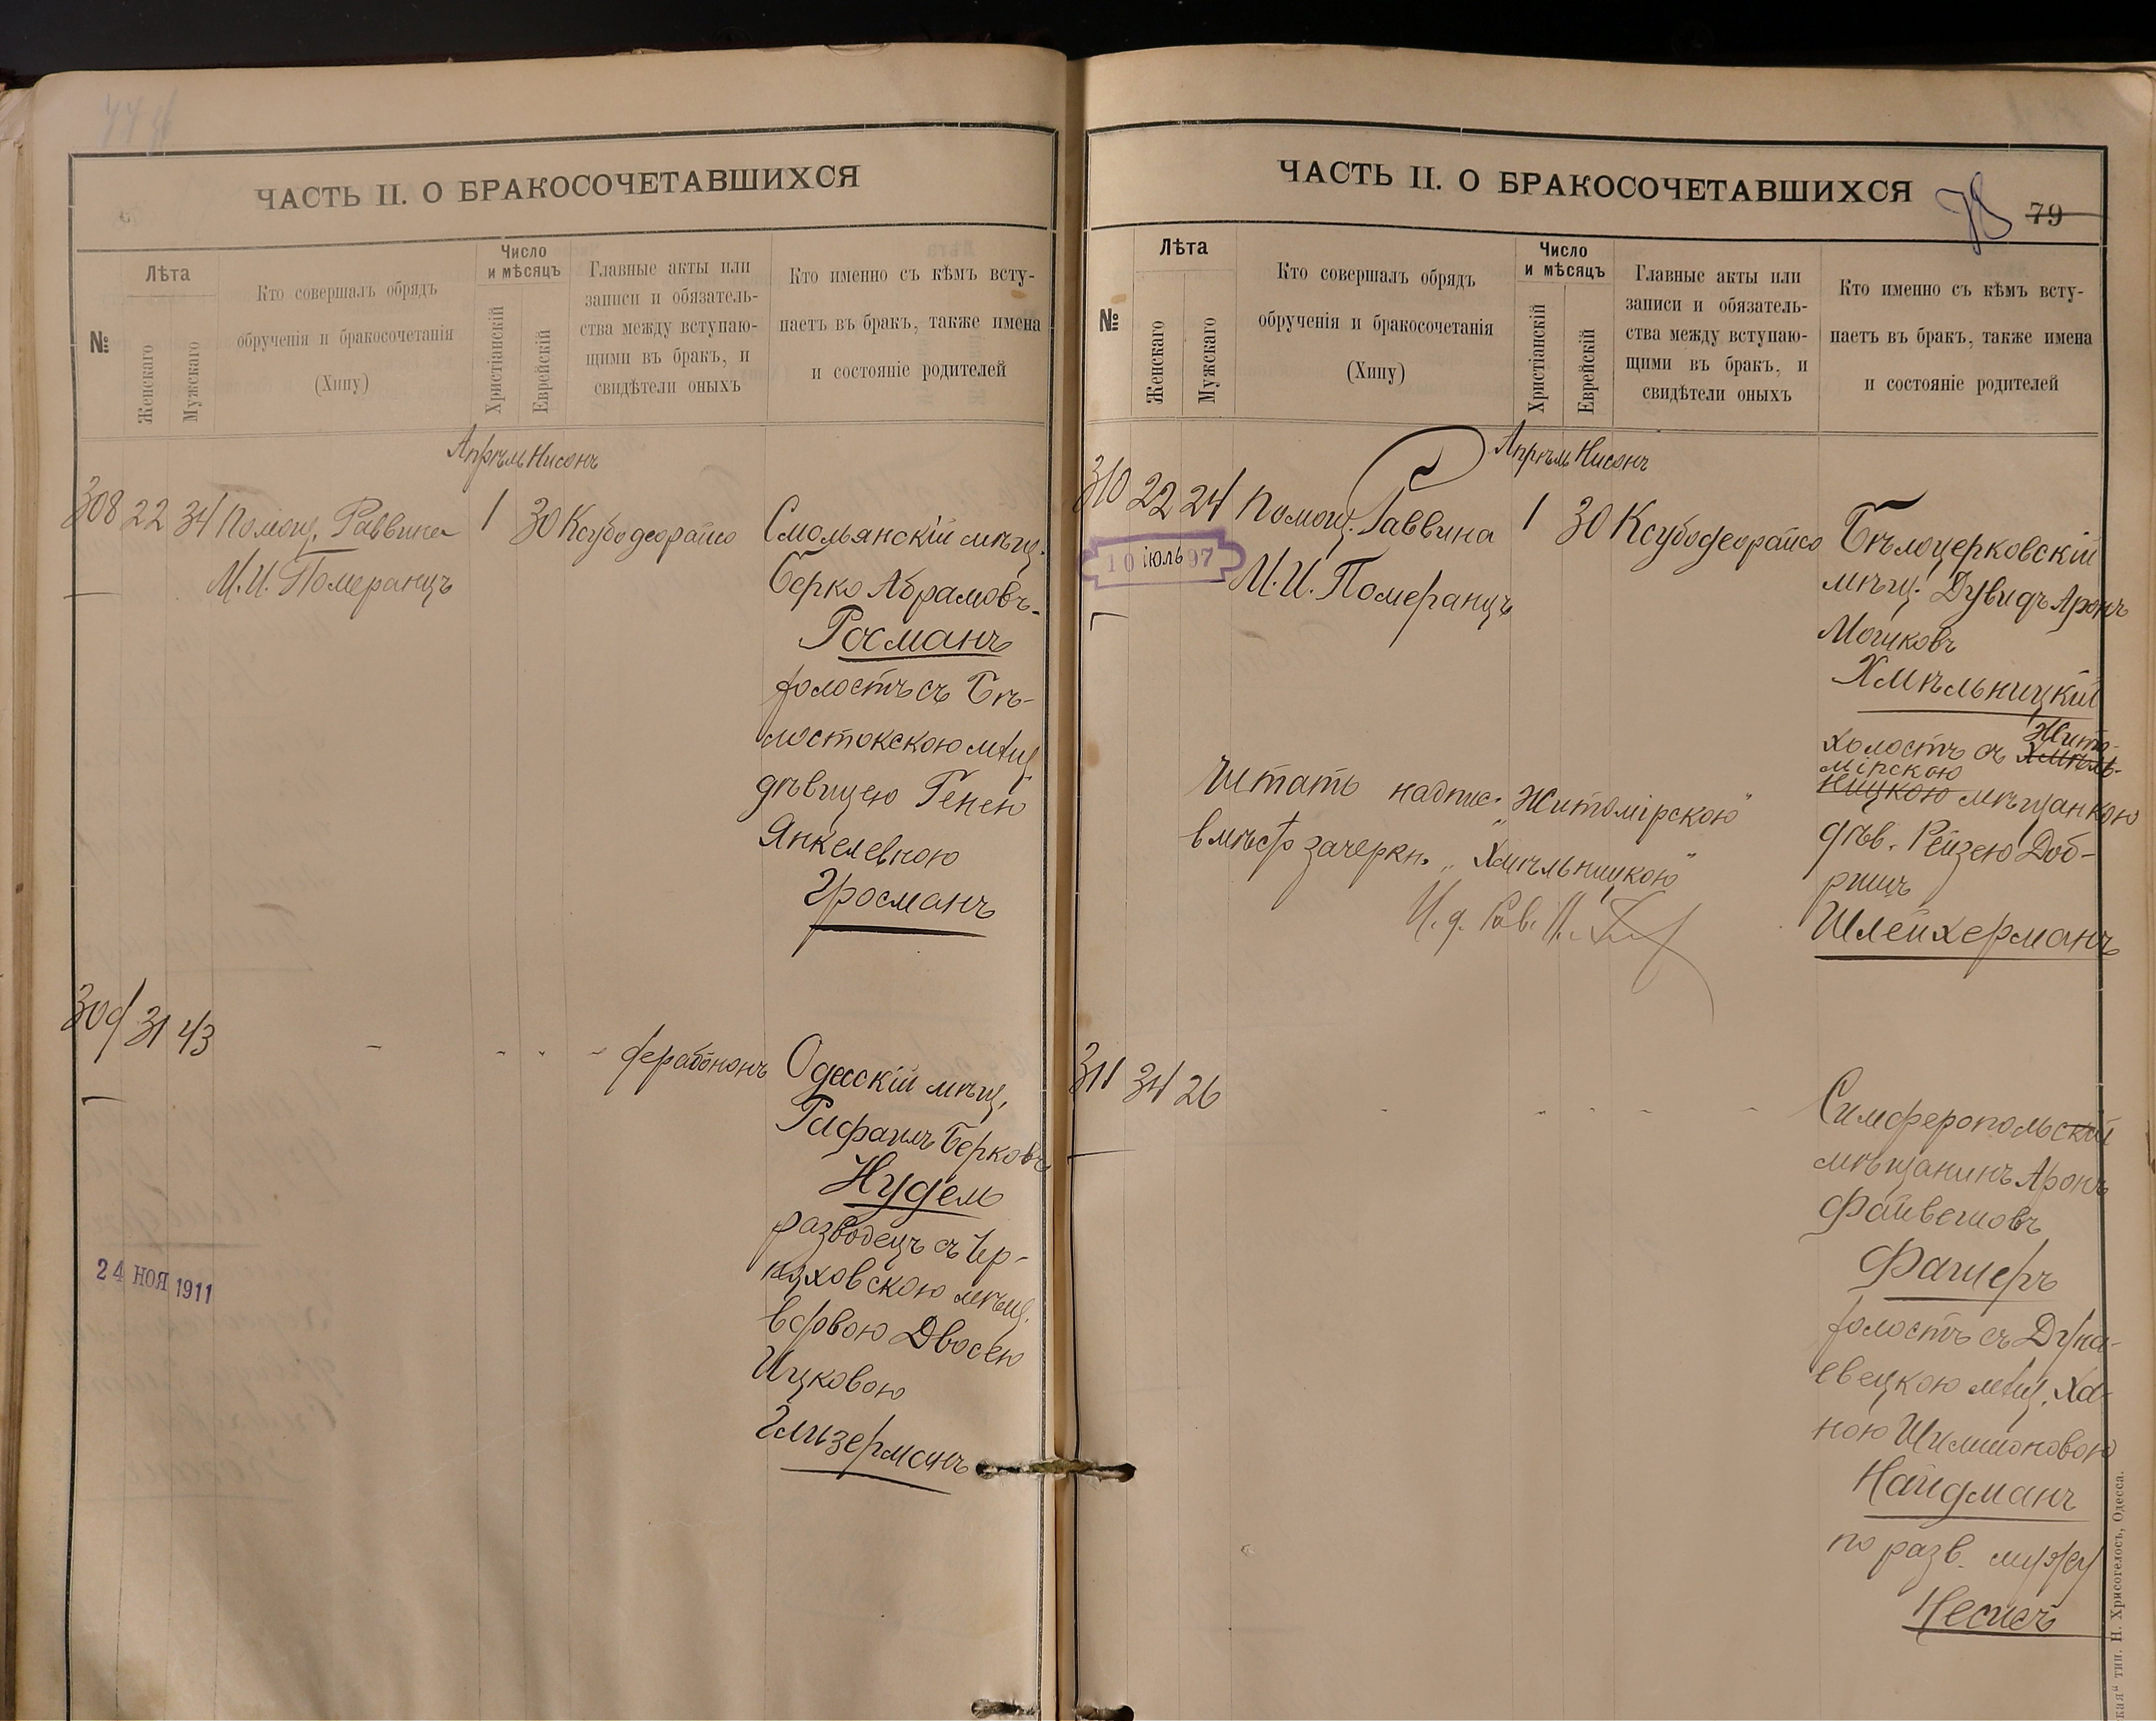 ЧАСТЬ II. О БРАКОСОЧЕТАВШИХСЯ
№
Лѣта
Женскаго
Мужскаго
Кто совершалъ обрядъ
обрученія и бракосочетанія
(Хипу)
Число
и мѣсяцъ
Христіанскій
Еврейскій
Главные акты или
записи и обязатель-
ства между вступаю-
щими въ бракъ, и
свидѣтели оныхъ
Кто именно съ кѣмъ всту-
паетъ въ бракъ, также имена
и состояніе родителей
Апрѣль Нисонъ
308 22 34 Помощ. Раввина 1 30 Ксубодеорайсо
М. И. Померанцъ
Смольянскій мѣщ.
Берко Абрамовъ
Росманъ
холостъ съ Бѣ-
лостокскою мѣщ.
дѣвицею Генею
Янкелевною
Гросманъ
309 31 43 - - - - дерабононъ
Одесскій мѣщ.
Рафаилъ Берковъ
Нудель
разводецъ съ Чер-
няховскою мѣщ.
вдовою Двосею
Ицковою
Глизерманъ
24 НОЯ 1911
ЧАСТЬ II. О БРАКОСОЧЕТАВШИХСЯ
79
№
Лѣта
Женскаго
Мужскаго
Кто совершалъ обрядъ
обрученія и бракосочетанія
(Хипу)
Число
и мѣсяцъ
Христіанскій
Еврейскій
Главные акты или
записи и обязатель-
ства между вступаю-
щими въ бракъ, и
свидѣтели оныхъ
Кто именно съ кѣмъ всту-
паетъ въ бракъ, также имена
и состояніе родителей
Апрѣль Нисонъ
310 22 24 Помощ. Раввина 1 30 Ксубодеорайсо
М. И. Померанцъ
10 іюль 97
Бѣлоцерковскій
мѣщ. Дувидъ Аронъ
Мошковъ
Хмѣльницкій
холостъ съ Хмѣль- Жито-
ницкою мірскою мѣщанкою
дѣв. Рейзею Доб-
ришъ
Шлейхерманъ
Читать надпис. „Житомірскою"
вмѣсто зачеркн. „Хмѣльницкою"
И. д. Рав.
311 34 26 - - - - -
Симферопольскій
мѣщанинъ Аронъ
Файвешовъ
Фашеръ
холостъ съ Дуна-
евецкою мѣщ. Ха-
ною Шулимоновою
Найдманъ
по разв. мужу
Несисъ
тип. Н. Хрисогелосъ, Одесса.